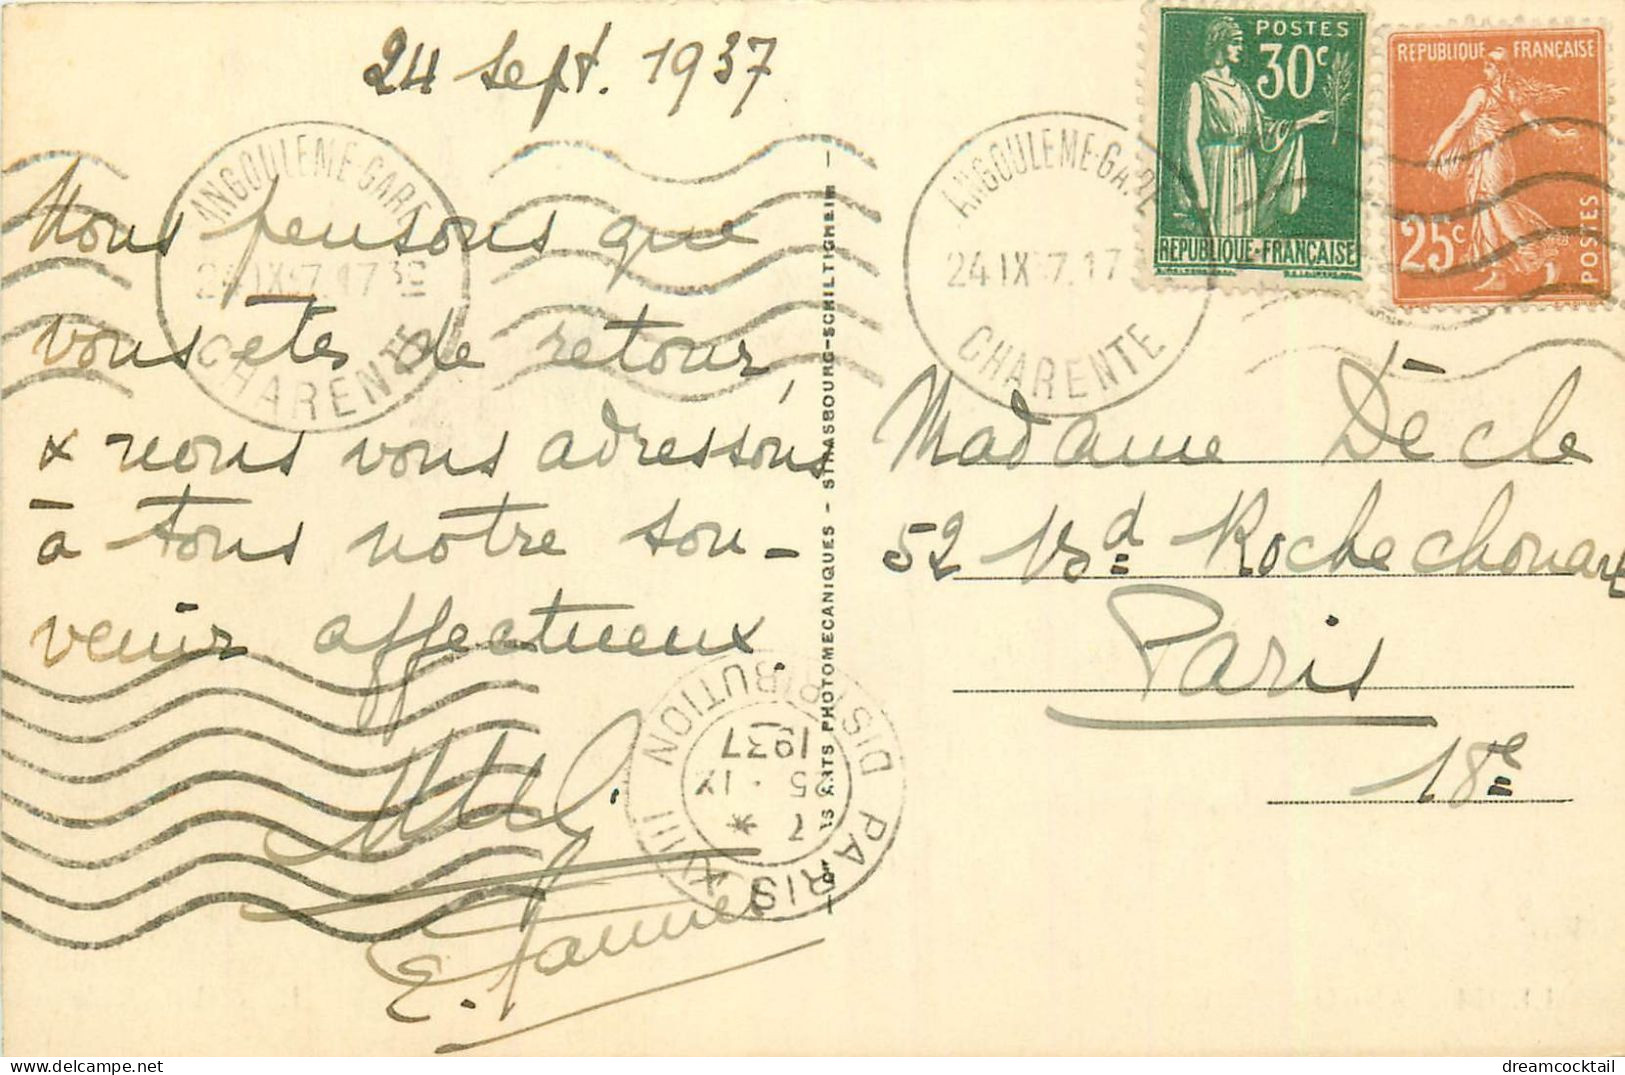 24 sept. 1937
Nous pensons que
vous etes de retour,
x nous vous adressons
à tous notre sou-
venir affectueux
ANGOULEME-GARE
24 IX 37. 17 30
CHARENTE
ANGOULEME-GARE
24 IX 37. 17
CHARENTE
POSTES
30c
REPUBLIQUE-FRANÇAISE
REPUBLIQUE FRANÇAISE
25c
POSTES
Madame Dècle
52 Bd Rochechouart
Paris
18e
ARTS PHOTOMECANIQUES - STRASBOURG-SCHILTIGHEIM
PARIS XVIII DISTRIBUTION
7 *
25 . IX
1937
dreamcocktail